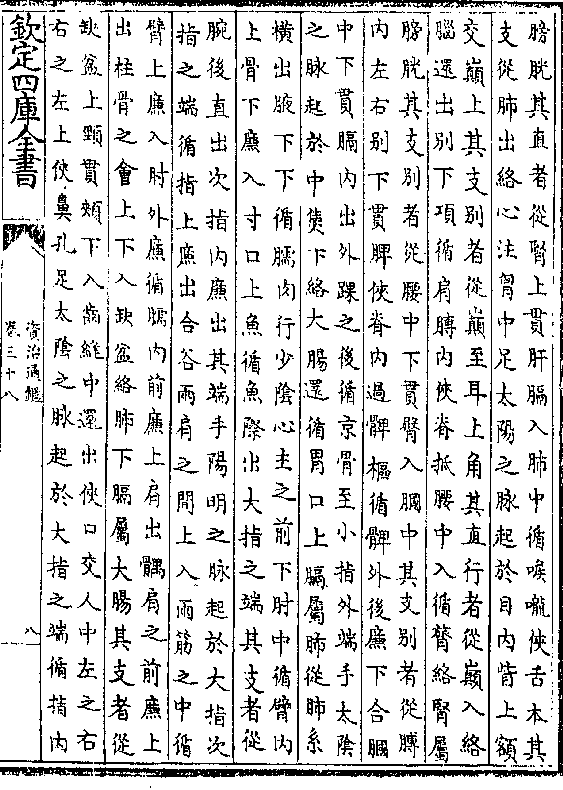 膀胱其直者從腎上貫肝膈入肺中循喉嚨俠舌本其
支從肺出絡心注胷中足太陽之脉起於目内眥上額
交巔上其支别者從巔至耳上角其直行者從巔入絡
腦還出别下項循肩膊内俠脊抵腰中入循膂絡腎屬
膀胱其支别者從腰中下貫臀入膕中其支别者從膊
内左右别下貫胛俠脊内過髀樞循髀外後廉下合膕
中下貫腨内出外踝之後循京骨至小指外端手太陰
之脉起於中焦下絡大腸還循胃口上膈屬肺從肺系
横出腋下下循臑内行少陰心主之前下肘中循臂内
上骨下廉入寸口上魚循魚際出大指之端其支者從
腕後直出次指内廉出其端手陽明之脉起於大指次
指之端循指上廉出合谷兩肩之間上入兩筋之中循
臂上廉入肘外廉循臑内前廉上肩出髃肩之前廉上
出柱骨之會上下入缺盆絡肺下膈屬大腸其支者從
缺盆上頸貫頰下入齒縫中還出俠口交人中左之右
右之左上俠鼻孔足太陰之脉起於大指之端循指内
欽定四庫全書
資治通鑑
卷三十八
八